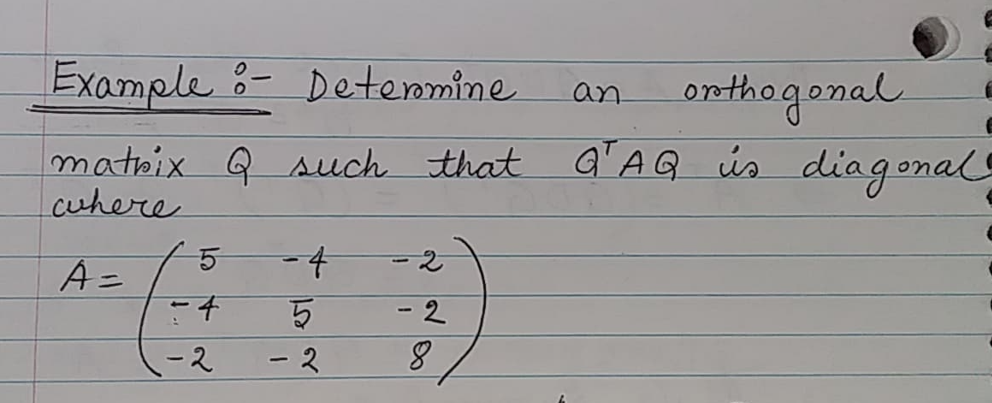 Example :- Determine an orthogonal
matrix Q such that QᵀAQ is diagonal
where
A = ( 5 -4 -2
-4 5 -2
-2 -2 8 )